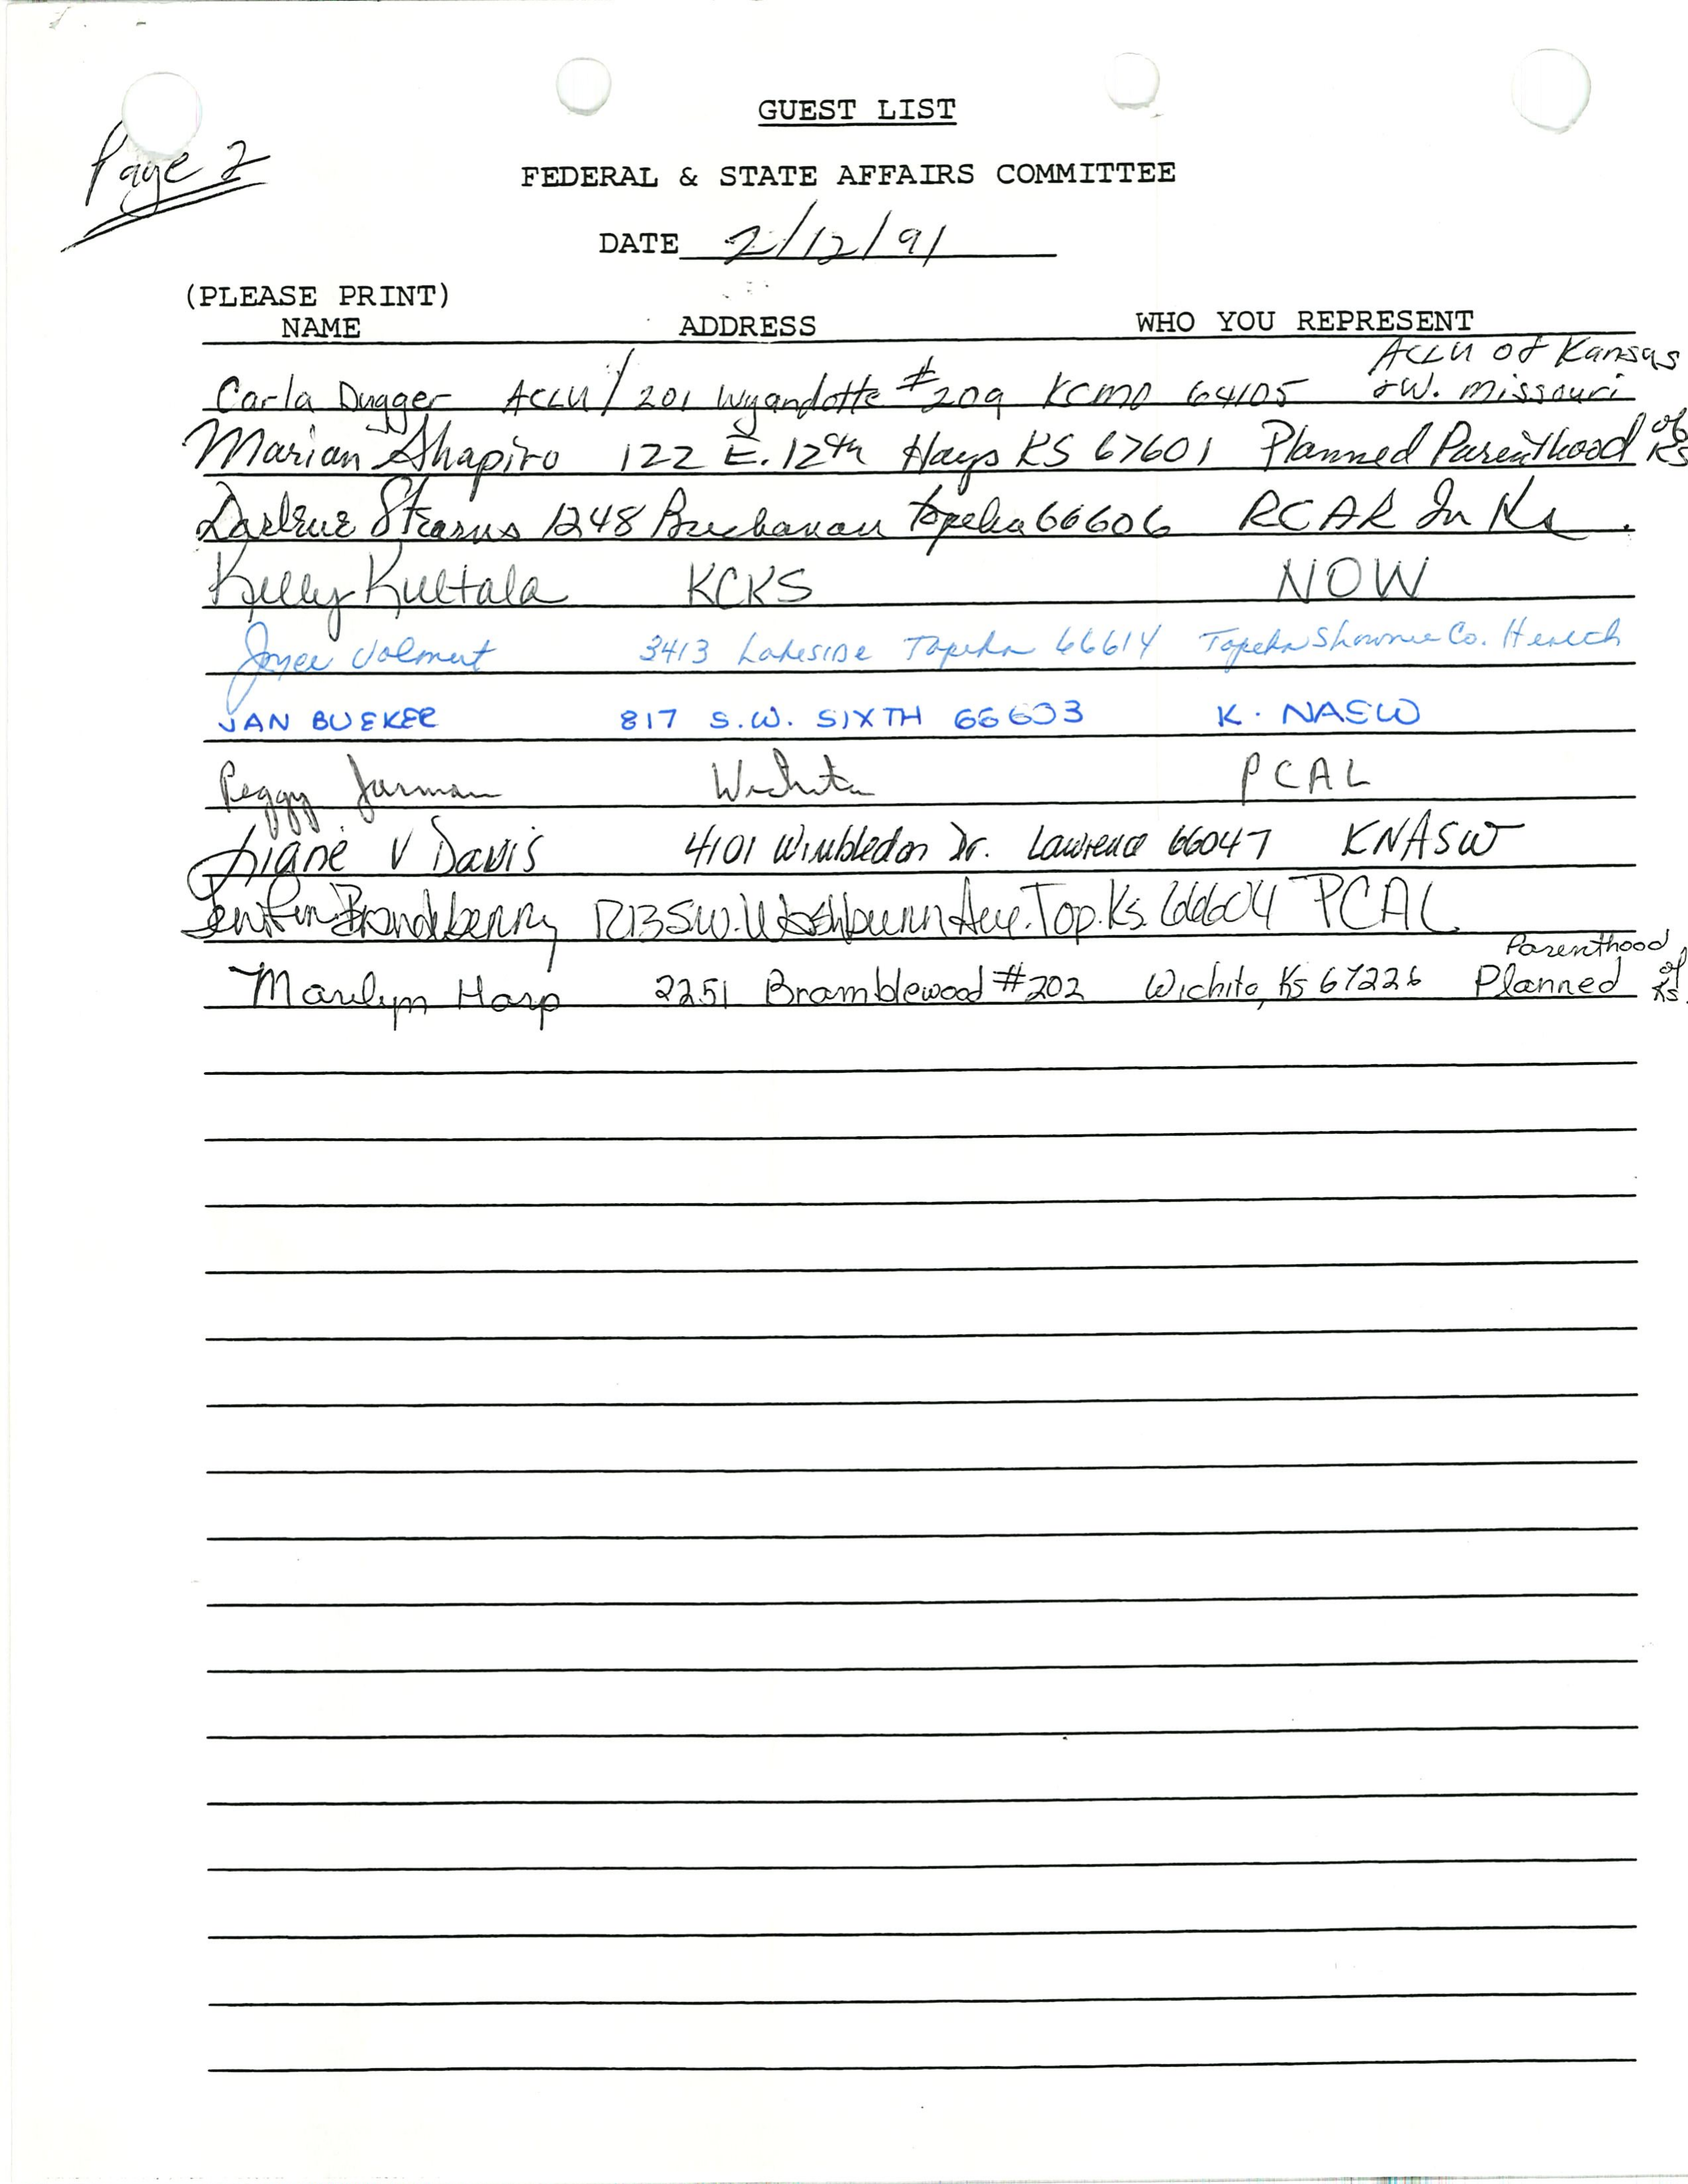 Page 2
GUEST LIST
FEDERAL & STATE AFFAIRS COMMITTEE
DATE 2/12/91
(PLEASE PRINT)
NAME ADDRESS WHO YOU REPRESENT
Carla Dugger ACLU/201 Wyandotte #209 KCMO 64105 ACLU of Kansas & W. Missouri
Marian Shapiro 122 E. 12th Hays KS 67601 Planned Parenthood of KS
Darlene Stearns 1248 Buchanan Topeka 66606 RCAR In Ks.
Kelly Kultala KCKS NOW
Joyce Volmut 3413 Lakeside Topeka 66614 Topeka Shawnee Co. Health
JAN BUEKER 817 S.W. SIXTH 66603 K. NASW
Peggy Jarman Wichita PCAL
Diane V Davis 4101 Wimbledon Dr. Lawrence 66047 KNASW
Brandeberry 1213 SW. Washburn Ave. Top. Ks. 66604 PCAL
Marilyn Harp 2251 Bramblewood #202 Wichita, Ks 67226 Planned Parenthood of Ks.